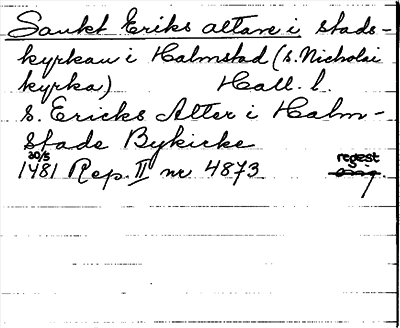 Sankt Eriks altare i stads-
kyrkan i Halmstad (s. Nicholai
kyrka) Hall. l.
S. Ericks Alter i Halm-
stads Bykicke
30/5 regest
1481 Rep. II nr 4873 orig